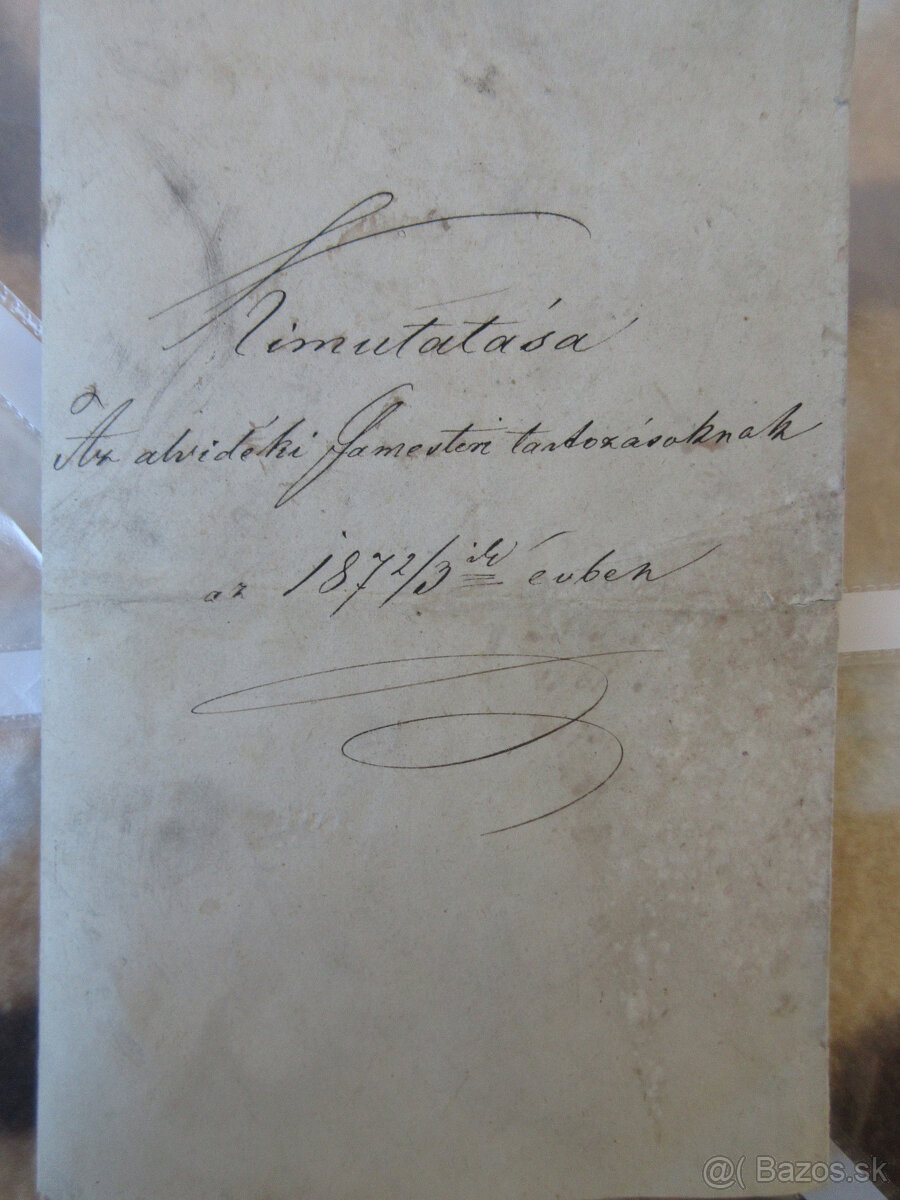 Kimutatása
Az alvidéki Jamesteri tartozásoknak
az 1872/3 ik évben
@( Bazos.sk